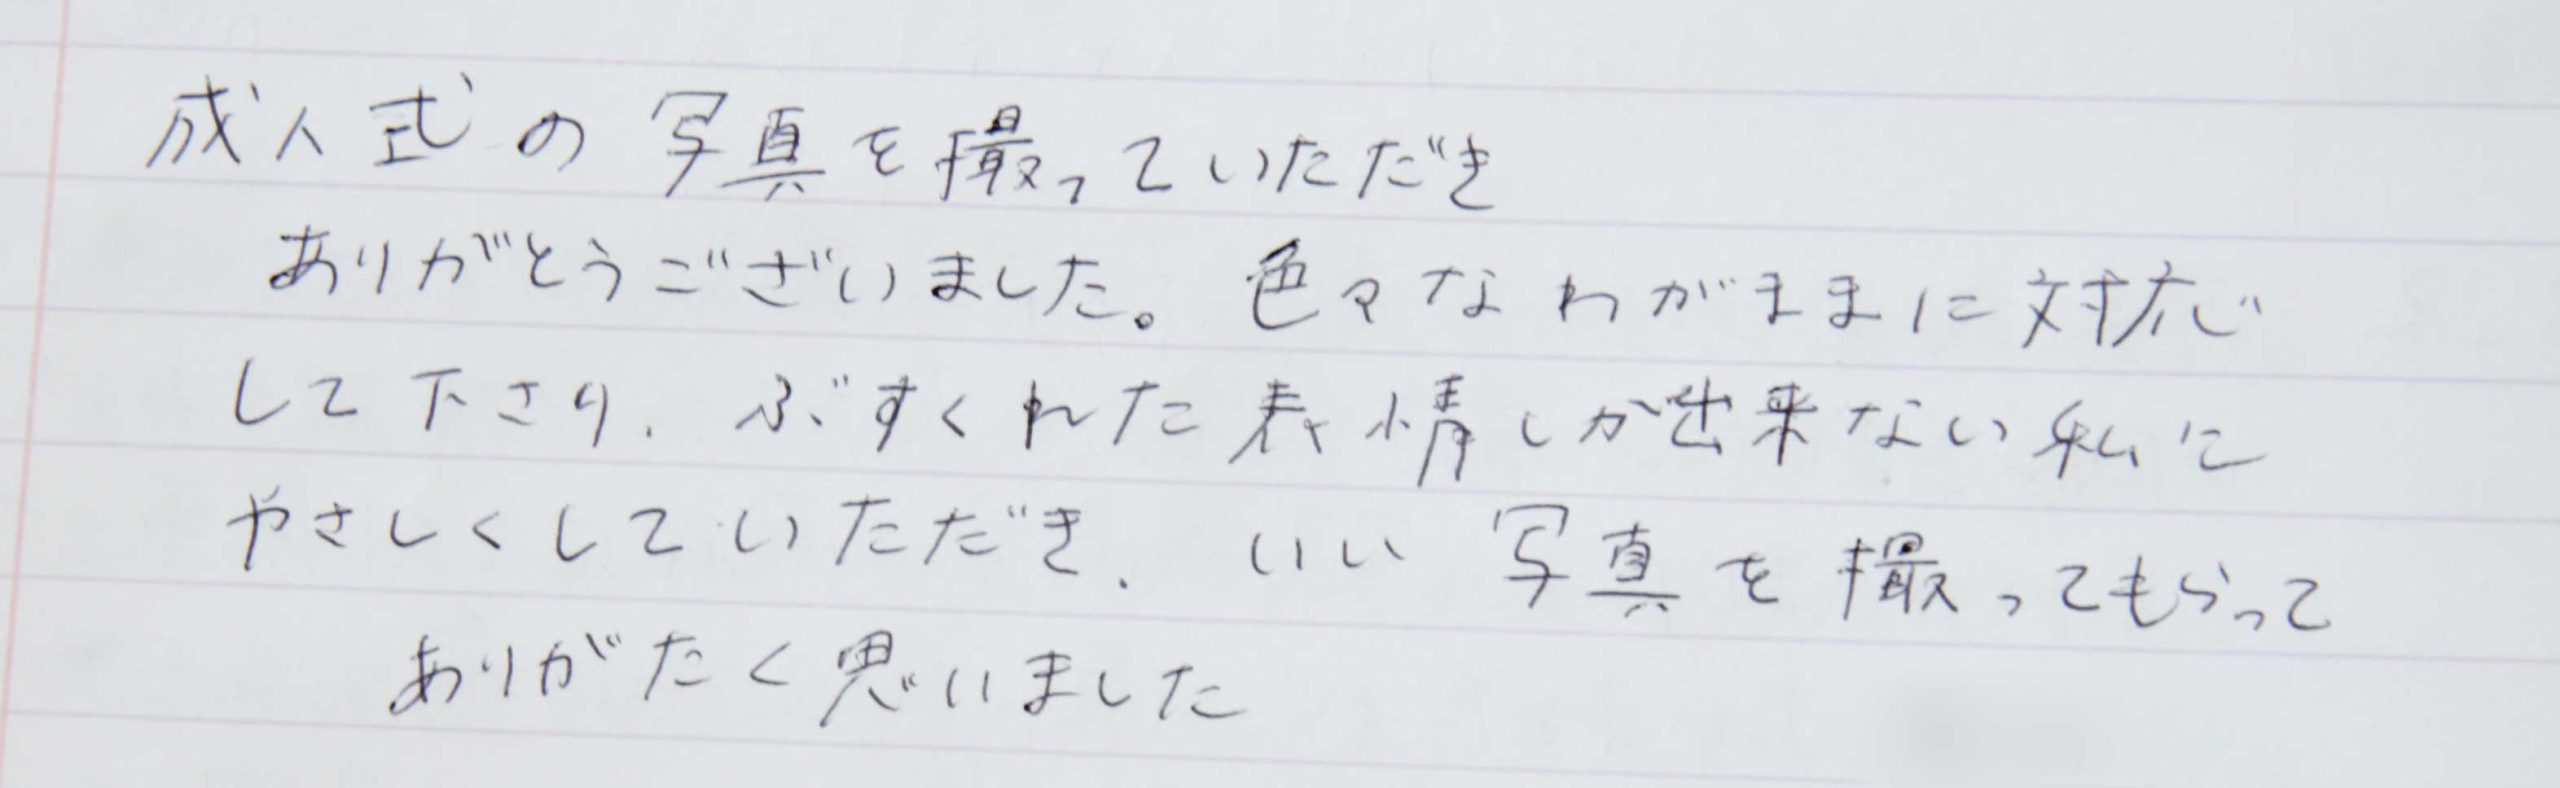 成人式の写真を撮っていただき
ありがとうございました。色々なわがままに対応
して下さり、ぶすくれた表情しか出来ない私に
やさしくしていただき、いい写真を撮ってもらって
ありがたく思いました